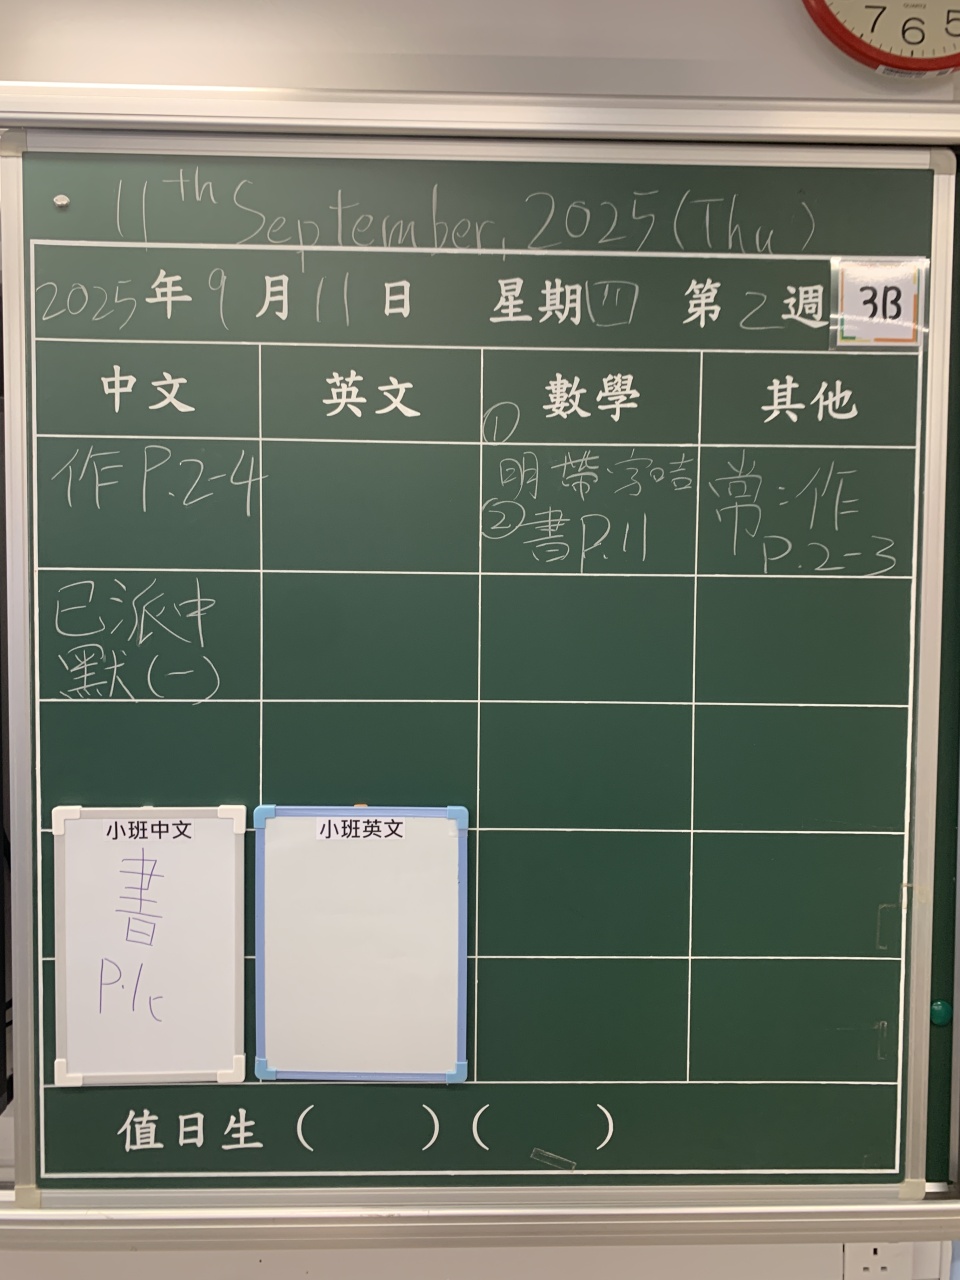 7 6 5
QUARTZ
11th September, 2025 (Thu)
2025年9月11日 星期四 第2週 3B
中文 英文 數學 其他
作P.2-4
已派中
默(一)
① 明帶字咭
② 書P.11
常:作
P.2-3
小班中文
書
小班英文
值日生( )( )